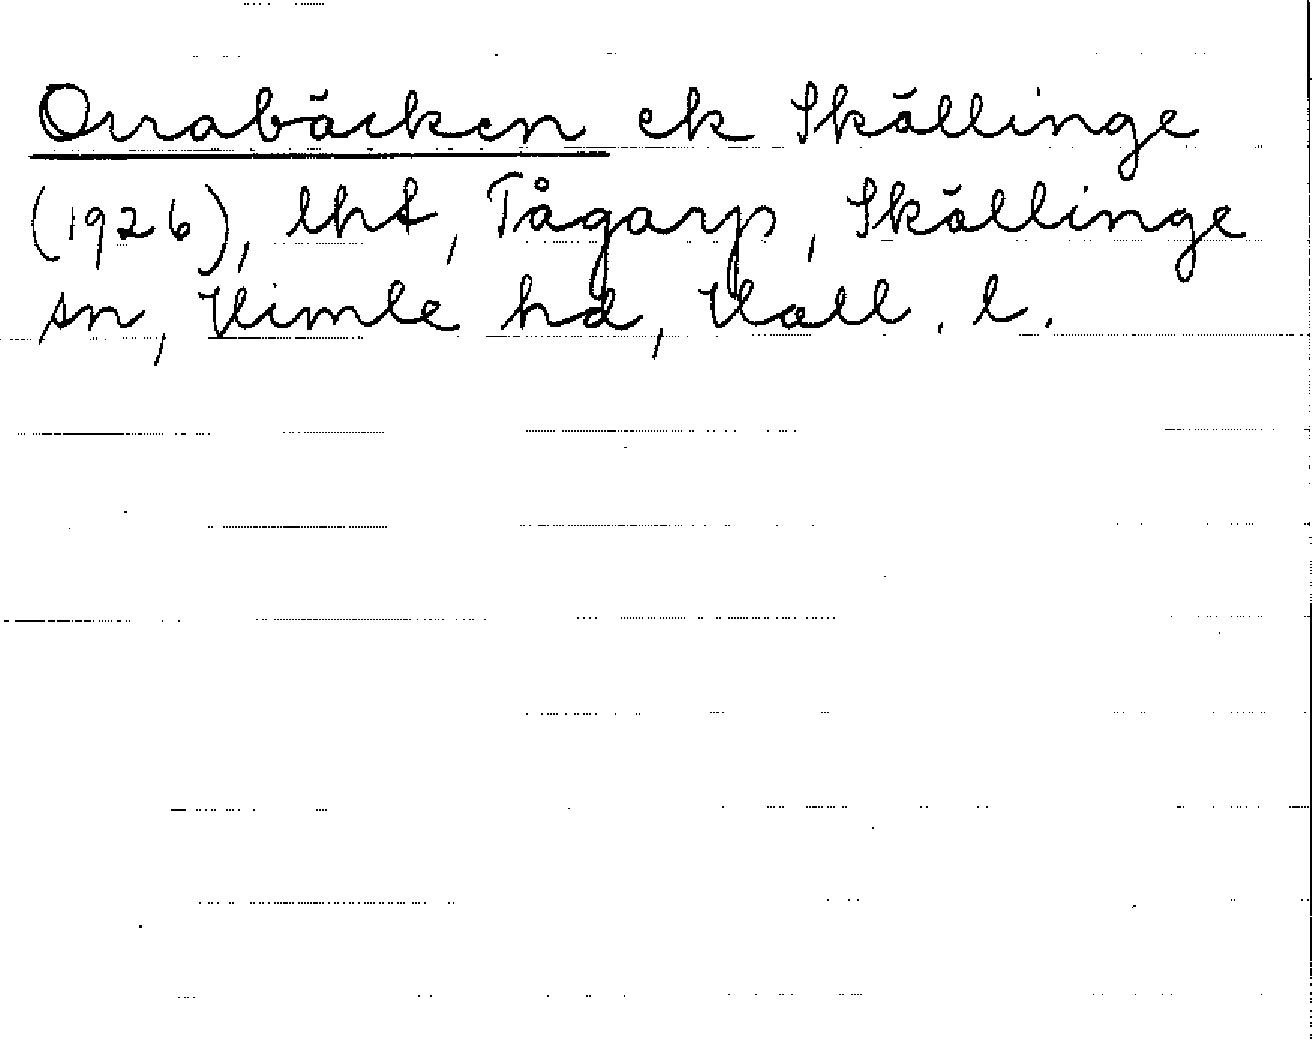 Orrabäcken ek Skällinge
(1926), lht, Tågarp, Skällinge
sn, Himle hd, Hall. l.